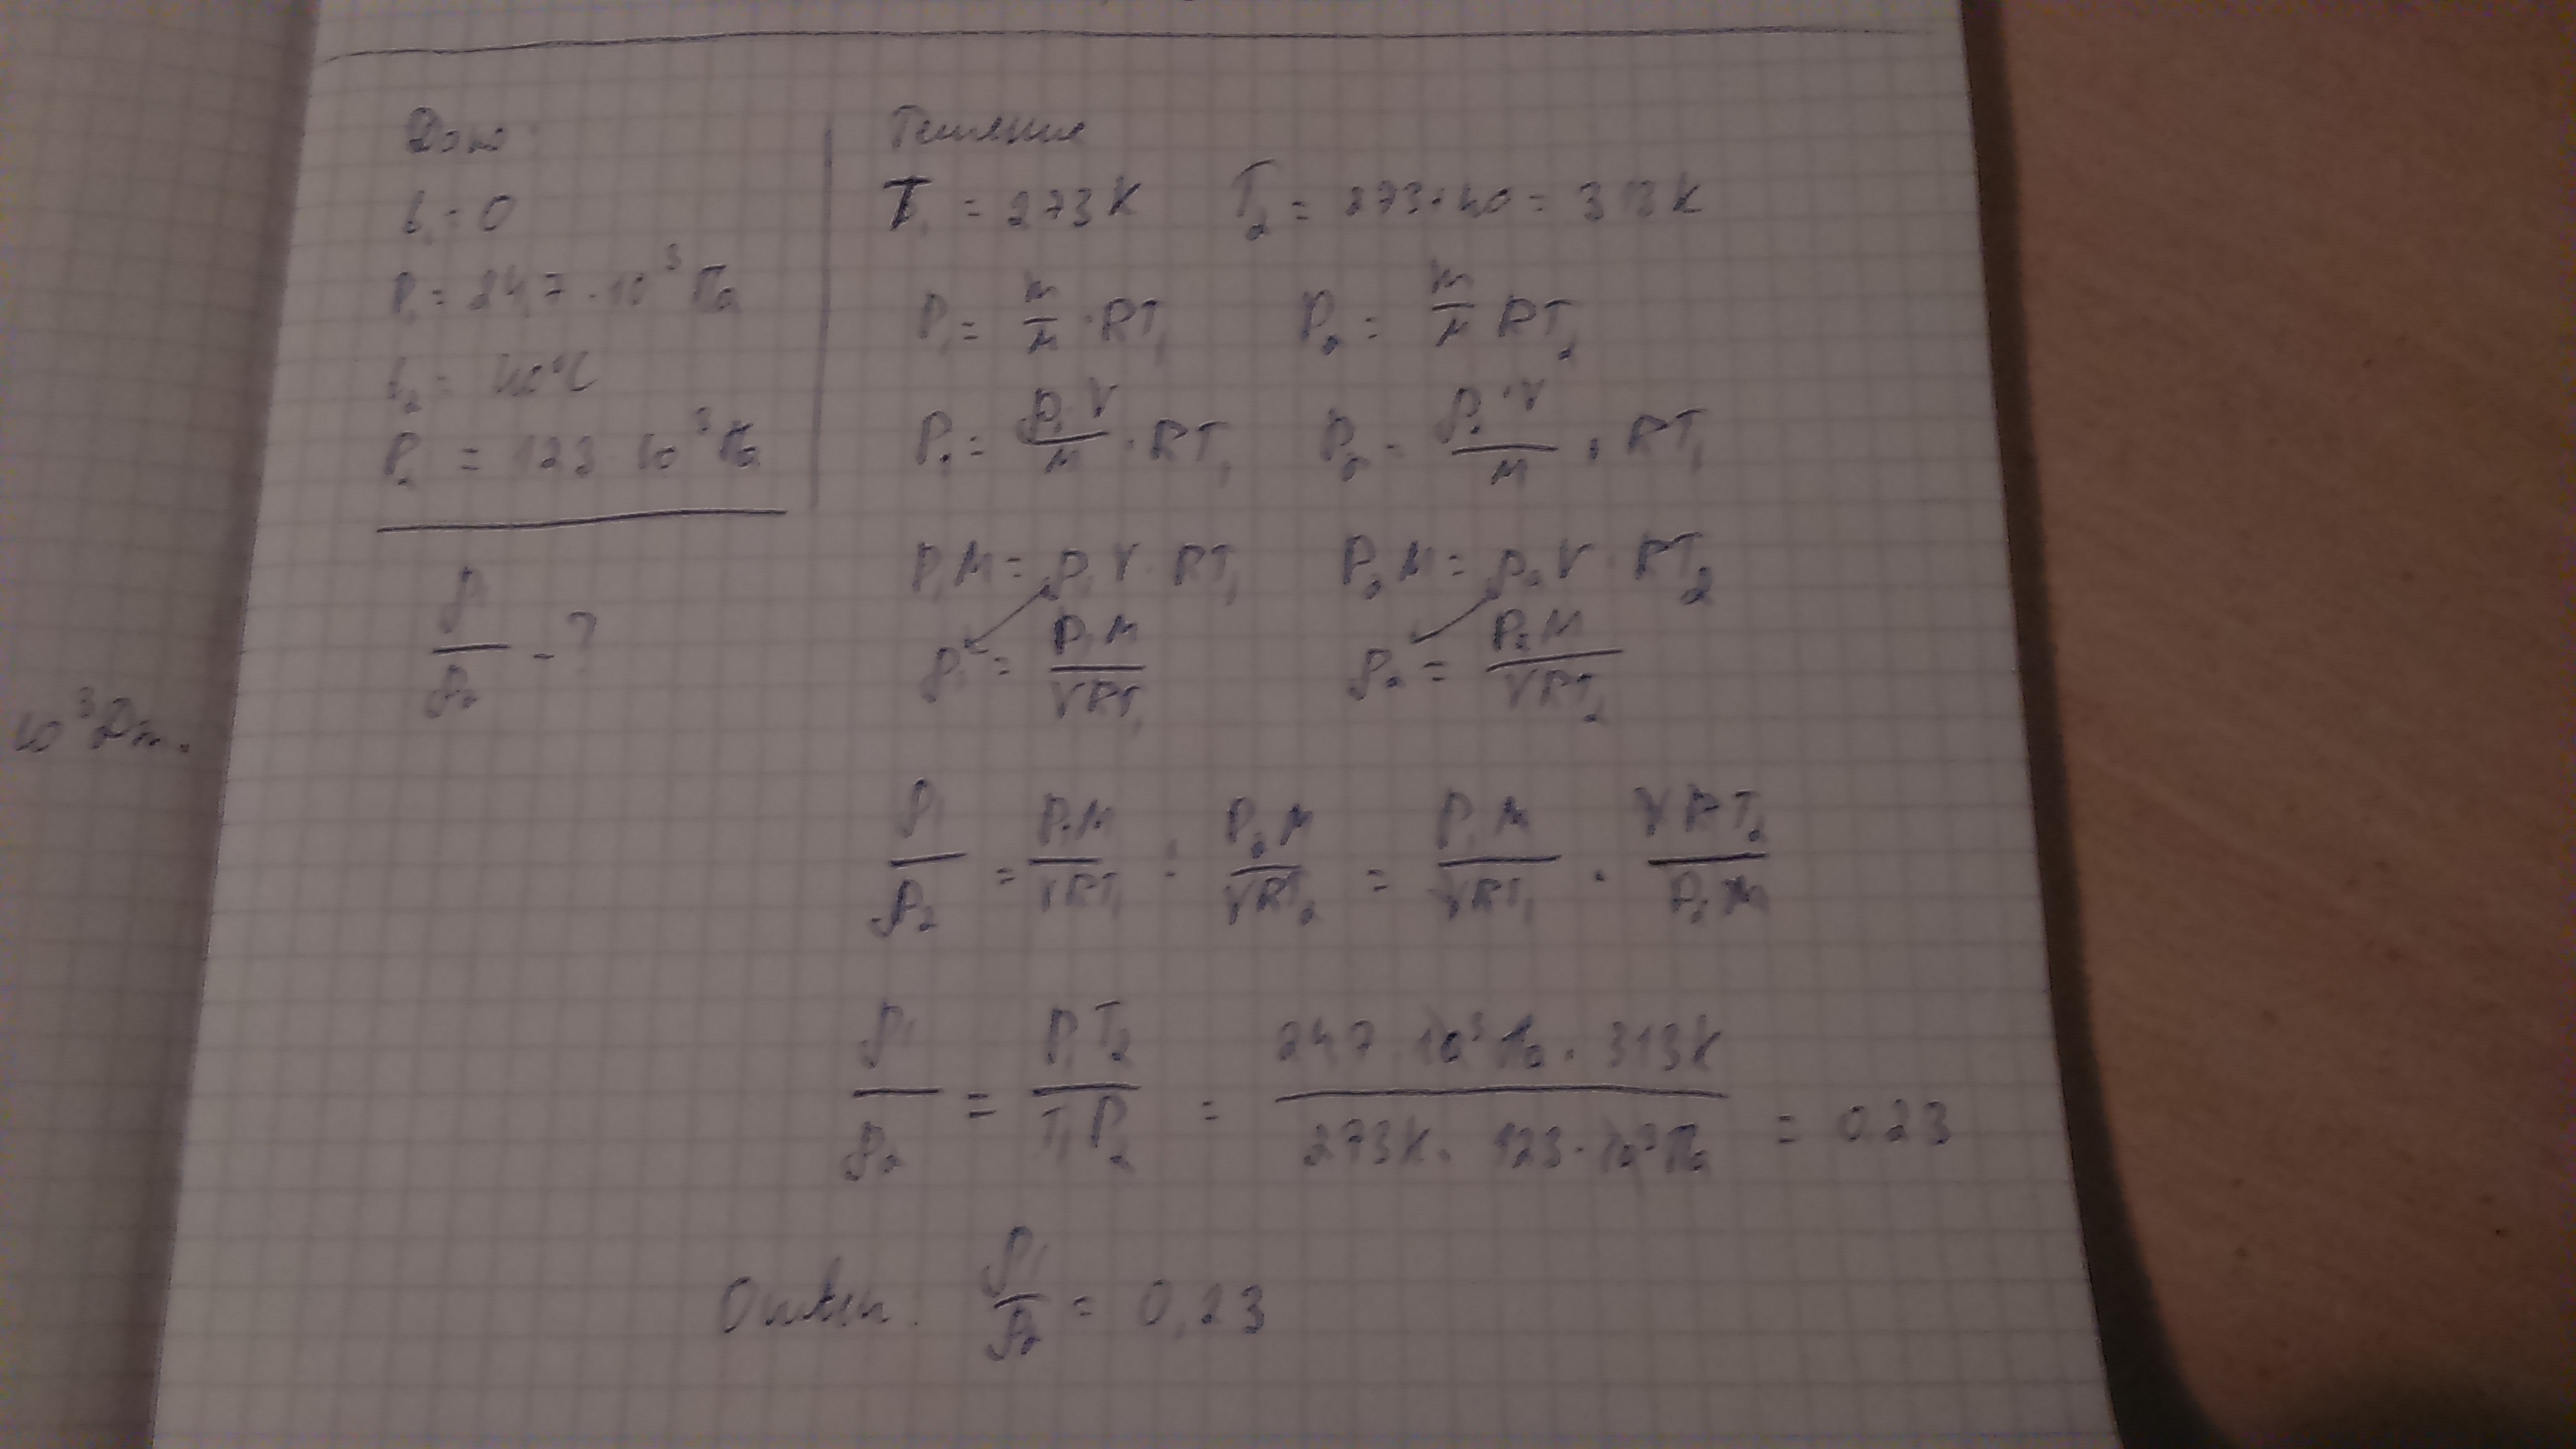 Дано:
t₁ = 0
P₁ = 24,7 · 10³ Па
t₂ = 40°C
P₂ = 123 · 10³ Па
ρ₁/ρ₂ - ?
10³ Дж.
Решение
T₁ = 273 К T₂ = 273+40 = 313 К
P₁ = m/M · RT₁ P₂ = m/M RT₂
P₁ = ρ₁V/M · RT₁ P₂ = ρ₂·V/M · RT₁
P₁M = ρ₁V · RT₁ P₂M = ρ₂V · RT₂
ρ₁ = P₁M/VRT₁ ρ₂ = P₂M/VRT₂
ρ₁/ρ₂ = P₁M/VRT₁ : P₂M/VRT₂ = P₁M/VRT₁ · VRT₂/P₂M
ρ₁/ρ₂ = P₁T₂/T₁P₂ = 24,7 · 10³ Па · 313 К/273 К · 123 · 10³ Па = 0.23
Ответ. ρ₁/ρ₂ = 0,23